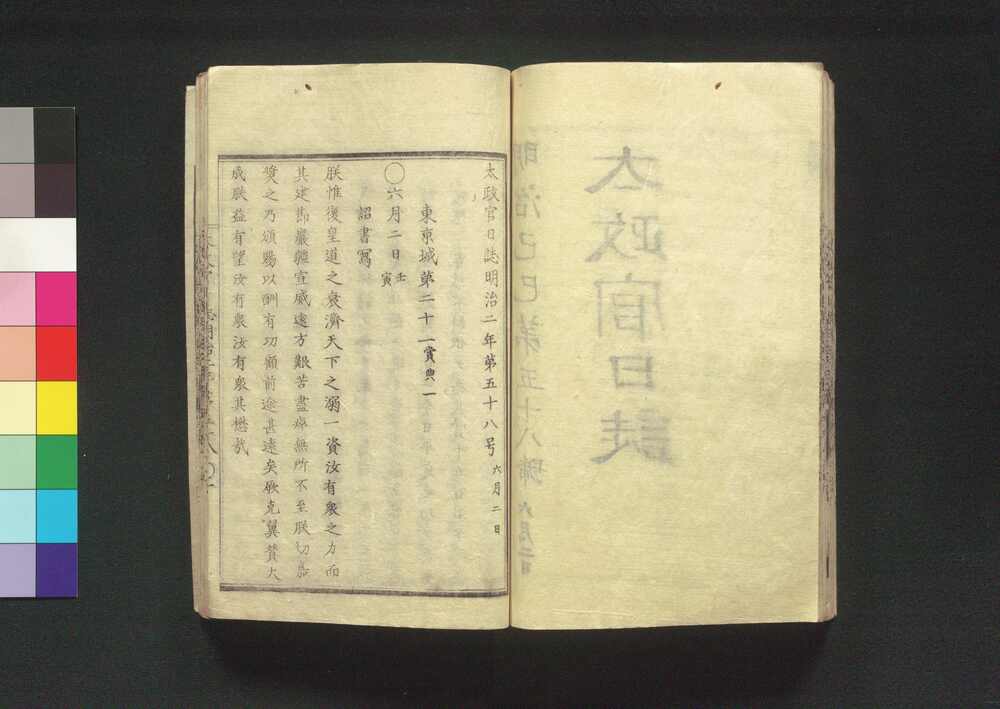 太政官日誌明治二年第五十八号 六月二日
東京城第二十一 賞典一
〇六月二日 壬寅
詔書寫
朕惟復皇道之衰濟天下之溺一資汝有衆之力而
其建節嚴疆宣威遠方艱苦盡瘁無所不至朕切嘉
奬之乃頒賜以酬有功顧前途甚遠矣厥克翼賛大
成朕益有望汝有衆汝有衆其懋哉